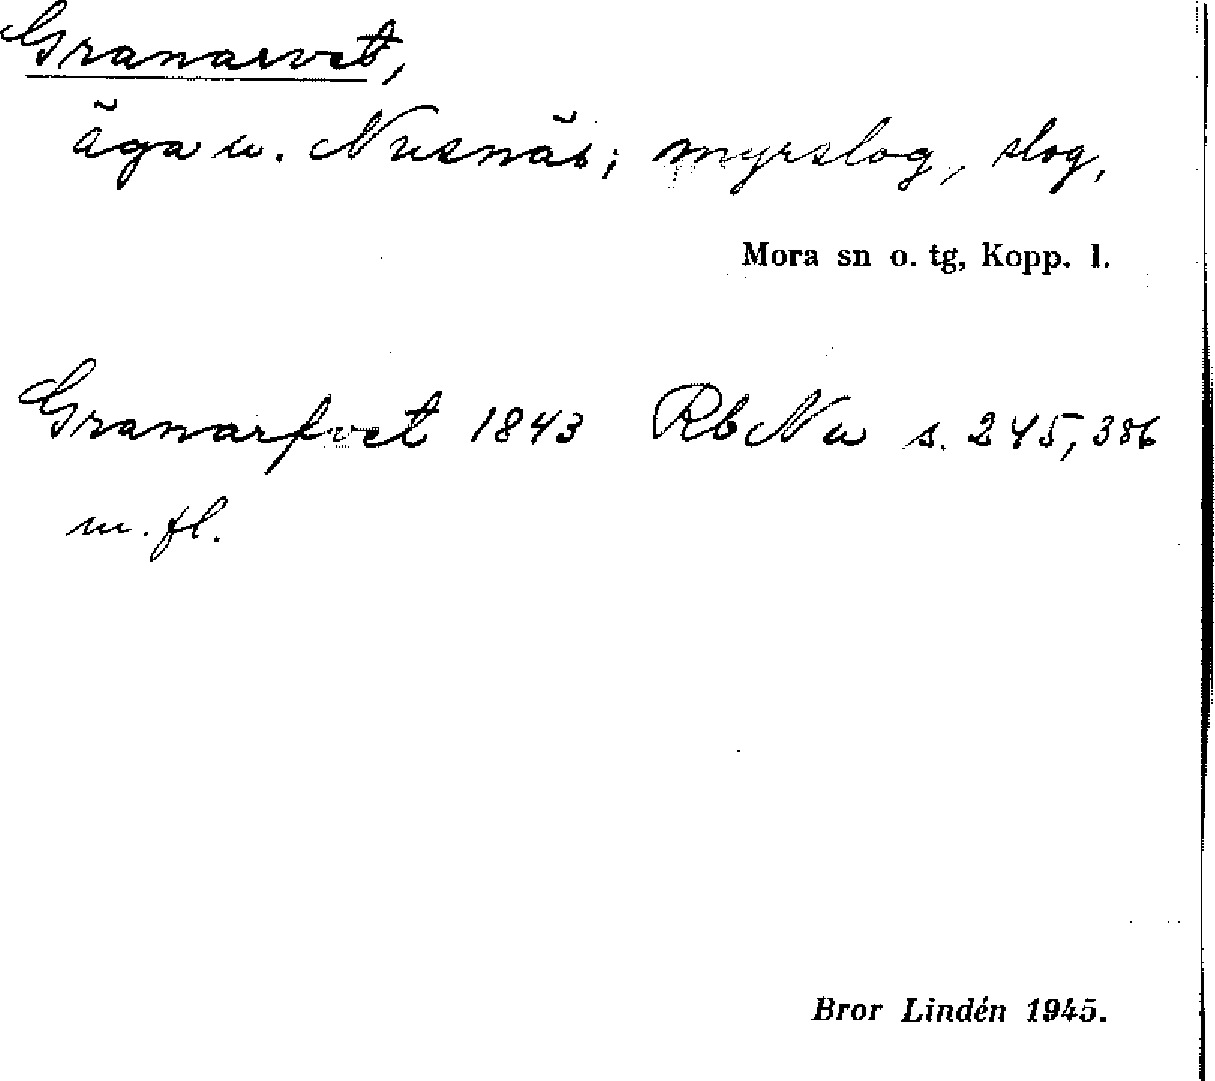 Granarvet,
äga u. Nusnäs; myrslog, slog,
Mora sn o. tg, Kopp. l.
Granarfvet 1843 Rb Nu s. 245, 386
m. fl.
Bror Lindén 1945.